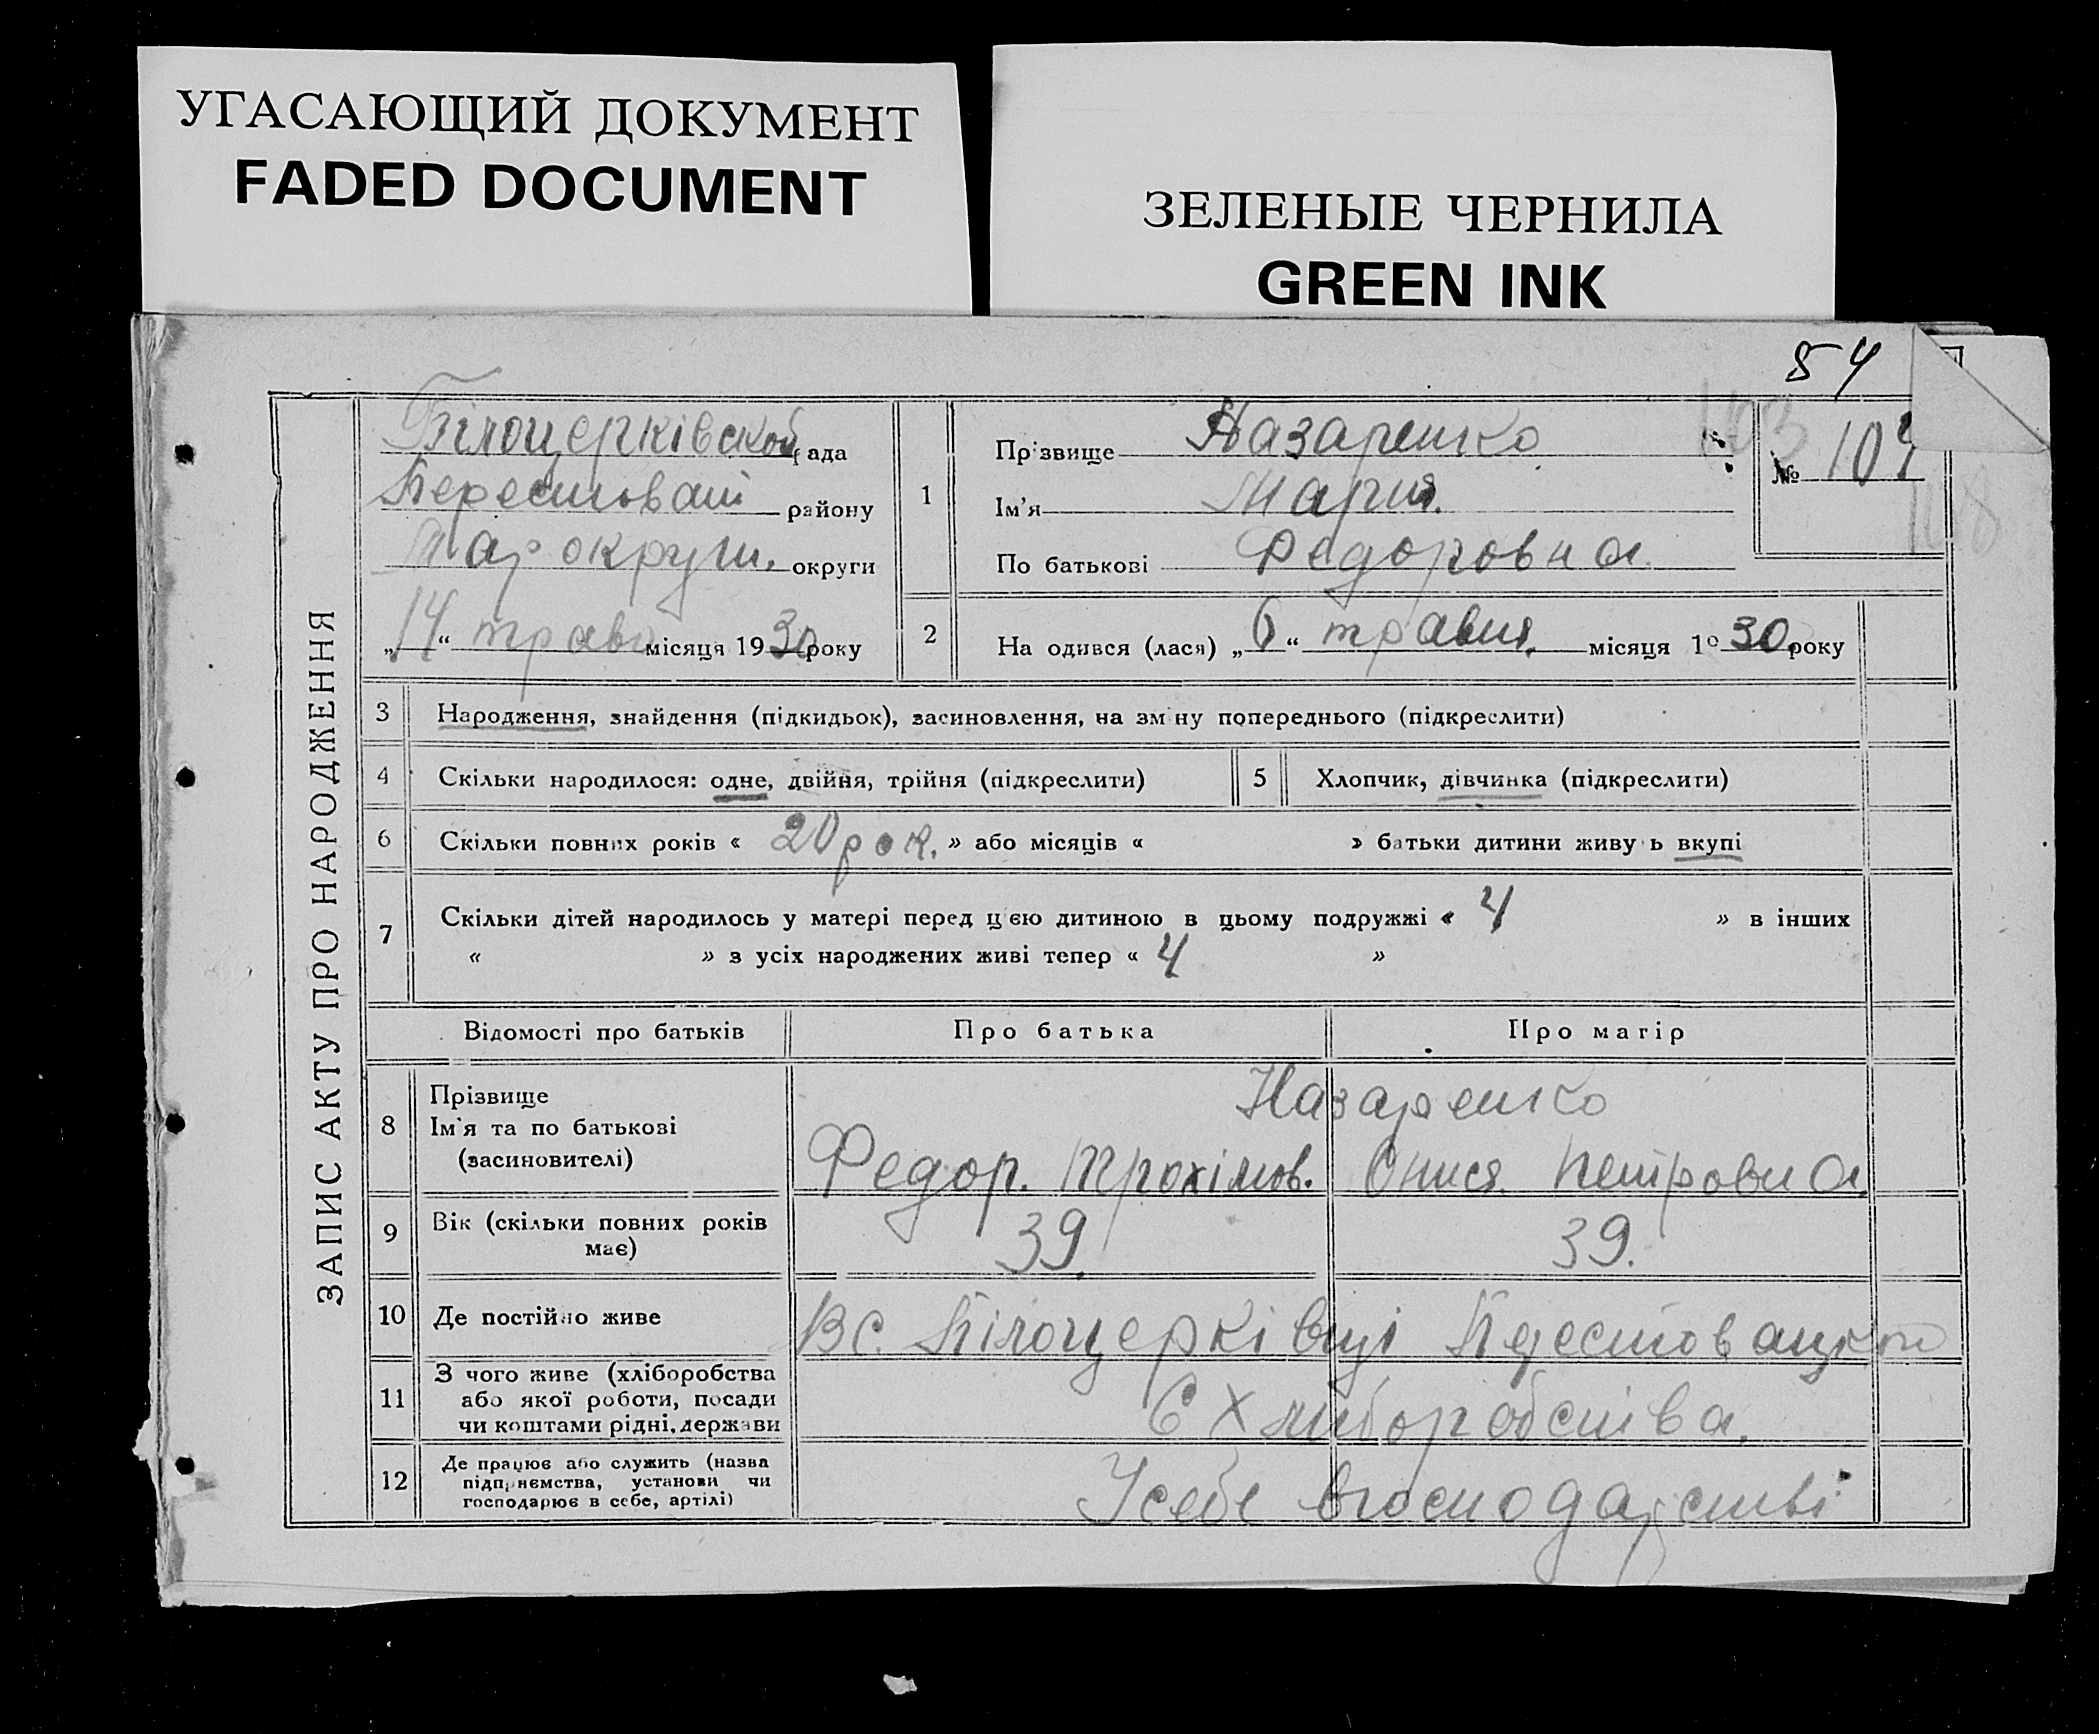 УГАСАЮЩИЙ ДОКУМЕНТ
FADED DOCUMENT
ЗЕЛЕНЫЕ ЧЕРНИЛА
GREEN INK
54
ЗАПИС АКТУ ПРО НАРОДЖЕННЯ
Білоцерківской рада
району
округи. округи
„14“ трав місяця 1930 року
1
Прізвище Назаренко
Ім’я Мария.
По батькові Федоровна
103
№ 107
108
2 На одився (лася) „6“ травня. місяця 1930 року
3 Народження, знайдення (підкидьок), засиновлення, на зміну попереднього (підкреслити)
4 Скільки народилося: одне, двійня, трійня (підкреслити)
5 Хлопчик, дівчинка (підкреслити)
6 Скільки повних років « 20 рок. » або місяців « » батьки дитини живу ь вкупі
7 Скільки дітей народилось у матері перед цією дитиною в цьому подружжі « 4 » в інших
« » з усіх народжених живі тепер « 4 »
Відомості про батьків Про батька Про матір
8 Прізвище
Ім’я та по батькові
(засиновителі)
Назаренко
Федор. Трохімов. Онися Петровна
9 Вік (скільки повних років
має)
39. 39.
10 Де постійно живе
В с. Білоцерківці
11 З чого живе (хліборобства
або якої роботи, посади
чи коштами рідні, держави
Є Хлиборобства.
12 Де працює або служить (назва
підприємства, установи чи
господарює в себе, артілі)
У себе в господарстві